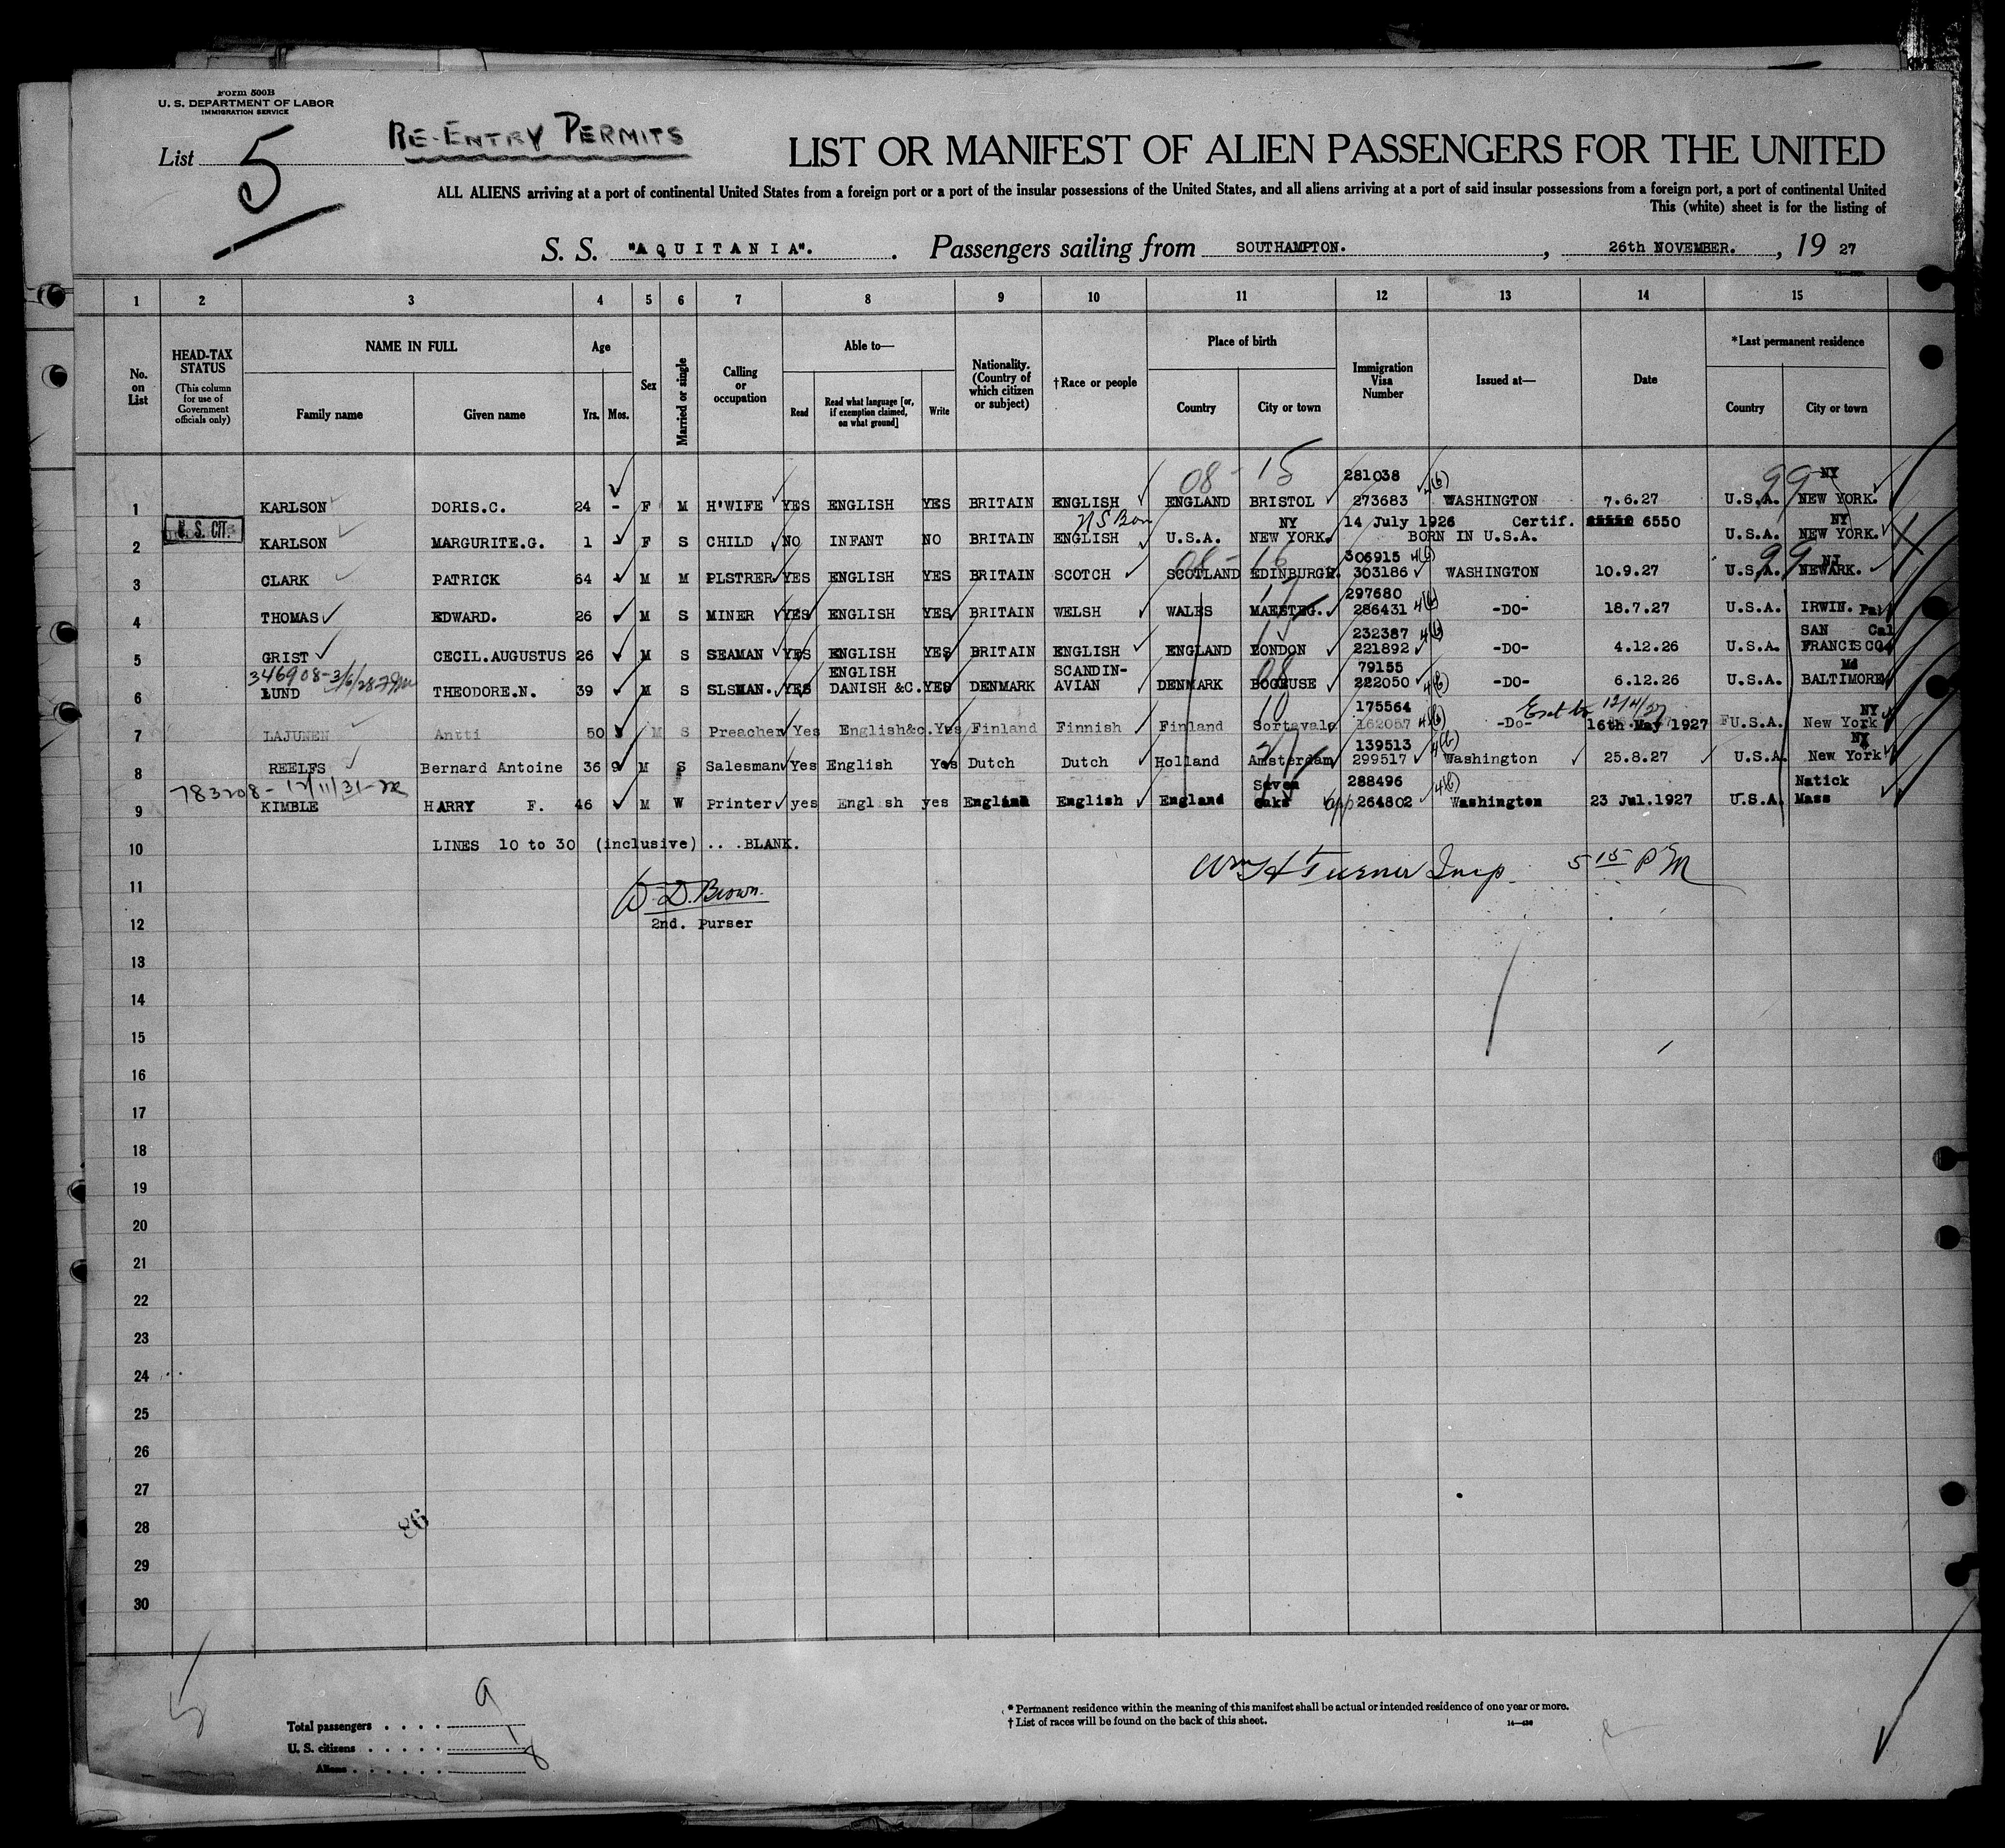 Form 500B
U. S. DEPARTMENT OF LABOR
IMMIGRATION SERVICE
List 5
RE-ENTRY PERMITS
LIST OR MANIFEST OF ALIEN PASSENGERS FOR THE UNITED
ALL ALIENS arriving at a port of continental United States from a foreign port or a port of the insular possessions of the United States, and all aliens arriving at a port of said insular possessions from a foreign port, a port of continental United
This (white) sheet is for the listing of
S. S. "AQUITANIA". Passengers sailing from SOUTHAMPTON. , 26th NOVEMBER. , 19 27
1 2 3 4 5 6 7 8 9 10 11 12 13 14 15
No. on List
HEAD-TAX STATUS (This column for use of Government officials only)
NAME IN FULL
Family name
Given name
Age
Yrs. Mos.
Sex
Married or single
Calling or occupation
Able to—
Read
Read what language [or, if exemption claimed, on what ground]
Write
Nationality. (Country of which citizen or subject)
†Race or people
Place of birth
Country
City or town
Immigration Visa Number
Issued at—
Date
*Last permanent residence
Country
City or town
08- 15 281038 4(b) 99 NY
1 KARLSON DORIS.C. 24 - F M H'WIFE YES ENGLISH YES BRITAIN ENGLISH ENGLAND BRISTOL 273683 WASHINGTON 7.6.27 U.S.A. NEW YORK.
U.S. CIT. NY 14 July 1926 Certif. 6550 NY
2 KARLSON MARGURITE.G. 1 - F S CHILD NO INFANT NO BRITAIN ENGLISH U.S.A. NEW YORK. BORN IN U.S.A. U.S.A. NEW YORK.
306915 4(b) 99 NJ
3 CLARK PATRICK 64 - M M PLSTRER YES ENGLISH YES BRITAIN SCOTCH SCOTLAND EDINBURGH. 303186 WASHINGTON 10.9.27 U.S.A. NEWARK.
297680
4 THOMAS EDWARD. 26 M S MINER YES ENGLISH YES BRITAIN WELSH WALES MAESTEG. 286431 4(b) -DO- 18.7.27 U.S.A. IRWIN. Pa
232387 4(b) SAN Cal
5 GRIST CECIL.AUGUSTUS 26 M S SEAMAN YES ENGLISH YES BRITAIN ENGLISH ENGLAND LONDON 221892 -DO- 4.12.26 U.S.A. FRANCISCO
346908-3/6/28 ENGLISH SCANDIN- 08 79155 Md
6 LUND THEODORE.N. 39 M S SLSMAN. YES DANISH &C. YES DENMARK AVIAN DENMARK BOGEUSE 222050 4(b) -DO- 6.12.26 U.S.A. BALTIMORE
175564 12/4/27 NY
7 LAJUNEN Antti 50 M S Preacher Yes English&c. Yes Finland Finnish Finland Sortavala 162057 4(b) -Do- 16th May 1927 U.S.A. New York
139513 4(b) NY
8 REELFS Bernard Antoine 36 9 M S Salesman Yes English Yes Dutch Dutch Holland Amsterdam 299517 Washington 25.8.27 U.S.A. New York
783208- 12/11/31 Seven 288496 4(b) Natick
9 KIMBLE HARRY F. 46 M W Printer yes Engl sh yes England English England Oaks app 264802 Washington 23 Jul.1927 U.S.A. Mass
10 LINES 10 to 30 (inclusive) .. .BLANK.
Wm H Turner Insp. 5 15 PM
11 D. D. Brown.
12 2nd. Purser
13
14
15
16
17
18
19
20
21
22
23
24
25
26
27
28 86
29
30
Total passengers . . . . 9
U. S. citizens . . . . . 1
Aliens . . . . . . 8
* Permanent residence within the meaning of this manifest shall be actual or intended residence of one year or more.
† List of races will be found on the back of this sheet.